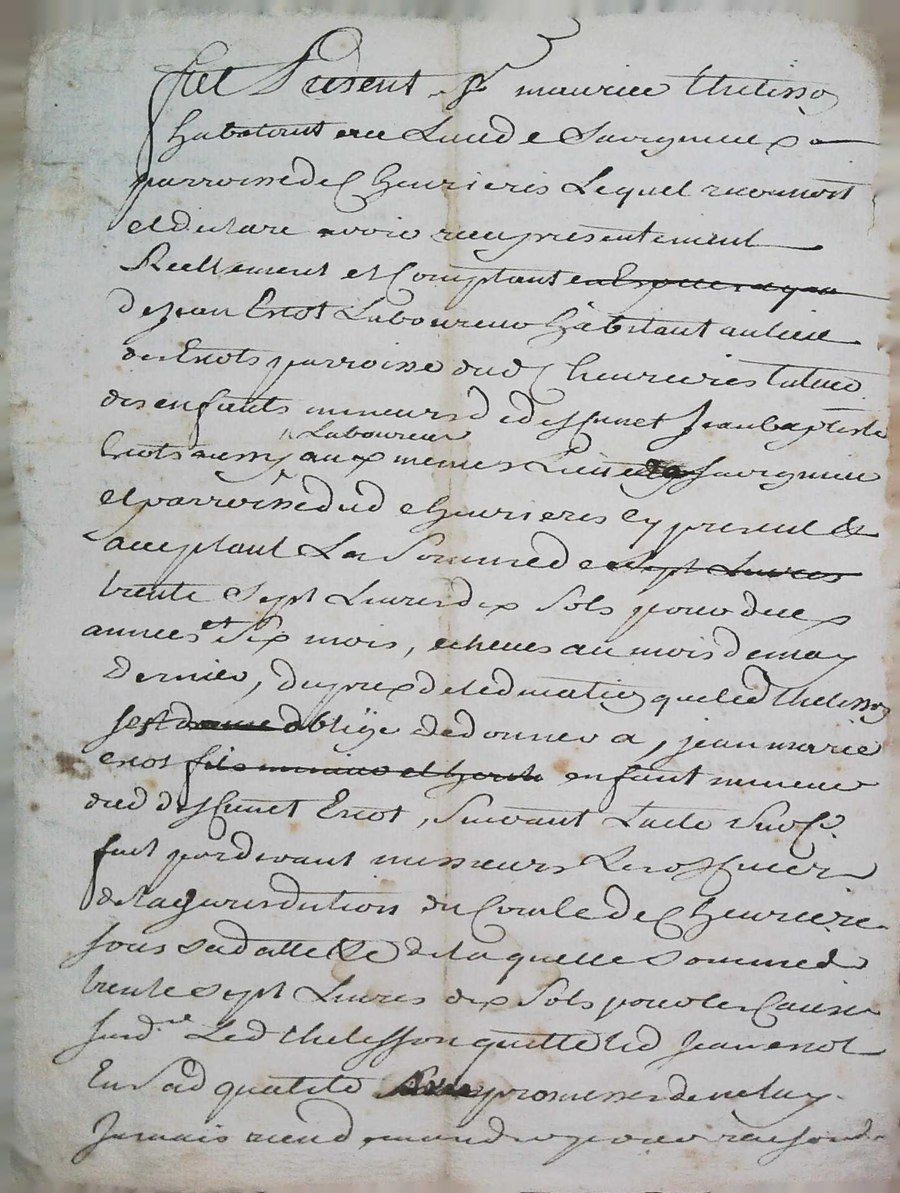 fut Présent Sr maurice thelisson
habitant au Lieu de Savignieux
parroisse de Cheurieres Lequel reconnoit
et declare avoir receu presentement
Reellement et Comptant
de Jean Exot Laboureur habitant au lieu
des Exots parroisse dud Cheurieres tuteur
des enfants mineurs de deffunct Jean baptiste
Laboureur
Exots aussy aux mesmes Lieu Savignieu
et parroisse dud cheurieres Cy present &
acceptant La Somme de sept Livres
trente Sept Livres dix Sols pour deux
années et Six mois, echeues au mois de may
Dernier, du prix de led que led thelisson
s'est obligé de donner a, jean marie
exot fils mineur et enfant mineur
dud deffunct Exot, Suivant Lacte Sur Ce
fait pardevant messieurs Les officiers
de la jurisdiction du Comté de Cheuriere
sous sa datte & de laquelle Somme de
trente sept Livres dix Sols pour les Causes
susd. Led thelisson quitte led Jean exot
En Sad qualité promesse de ne luy
Jamais rien demander